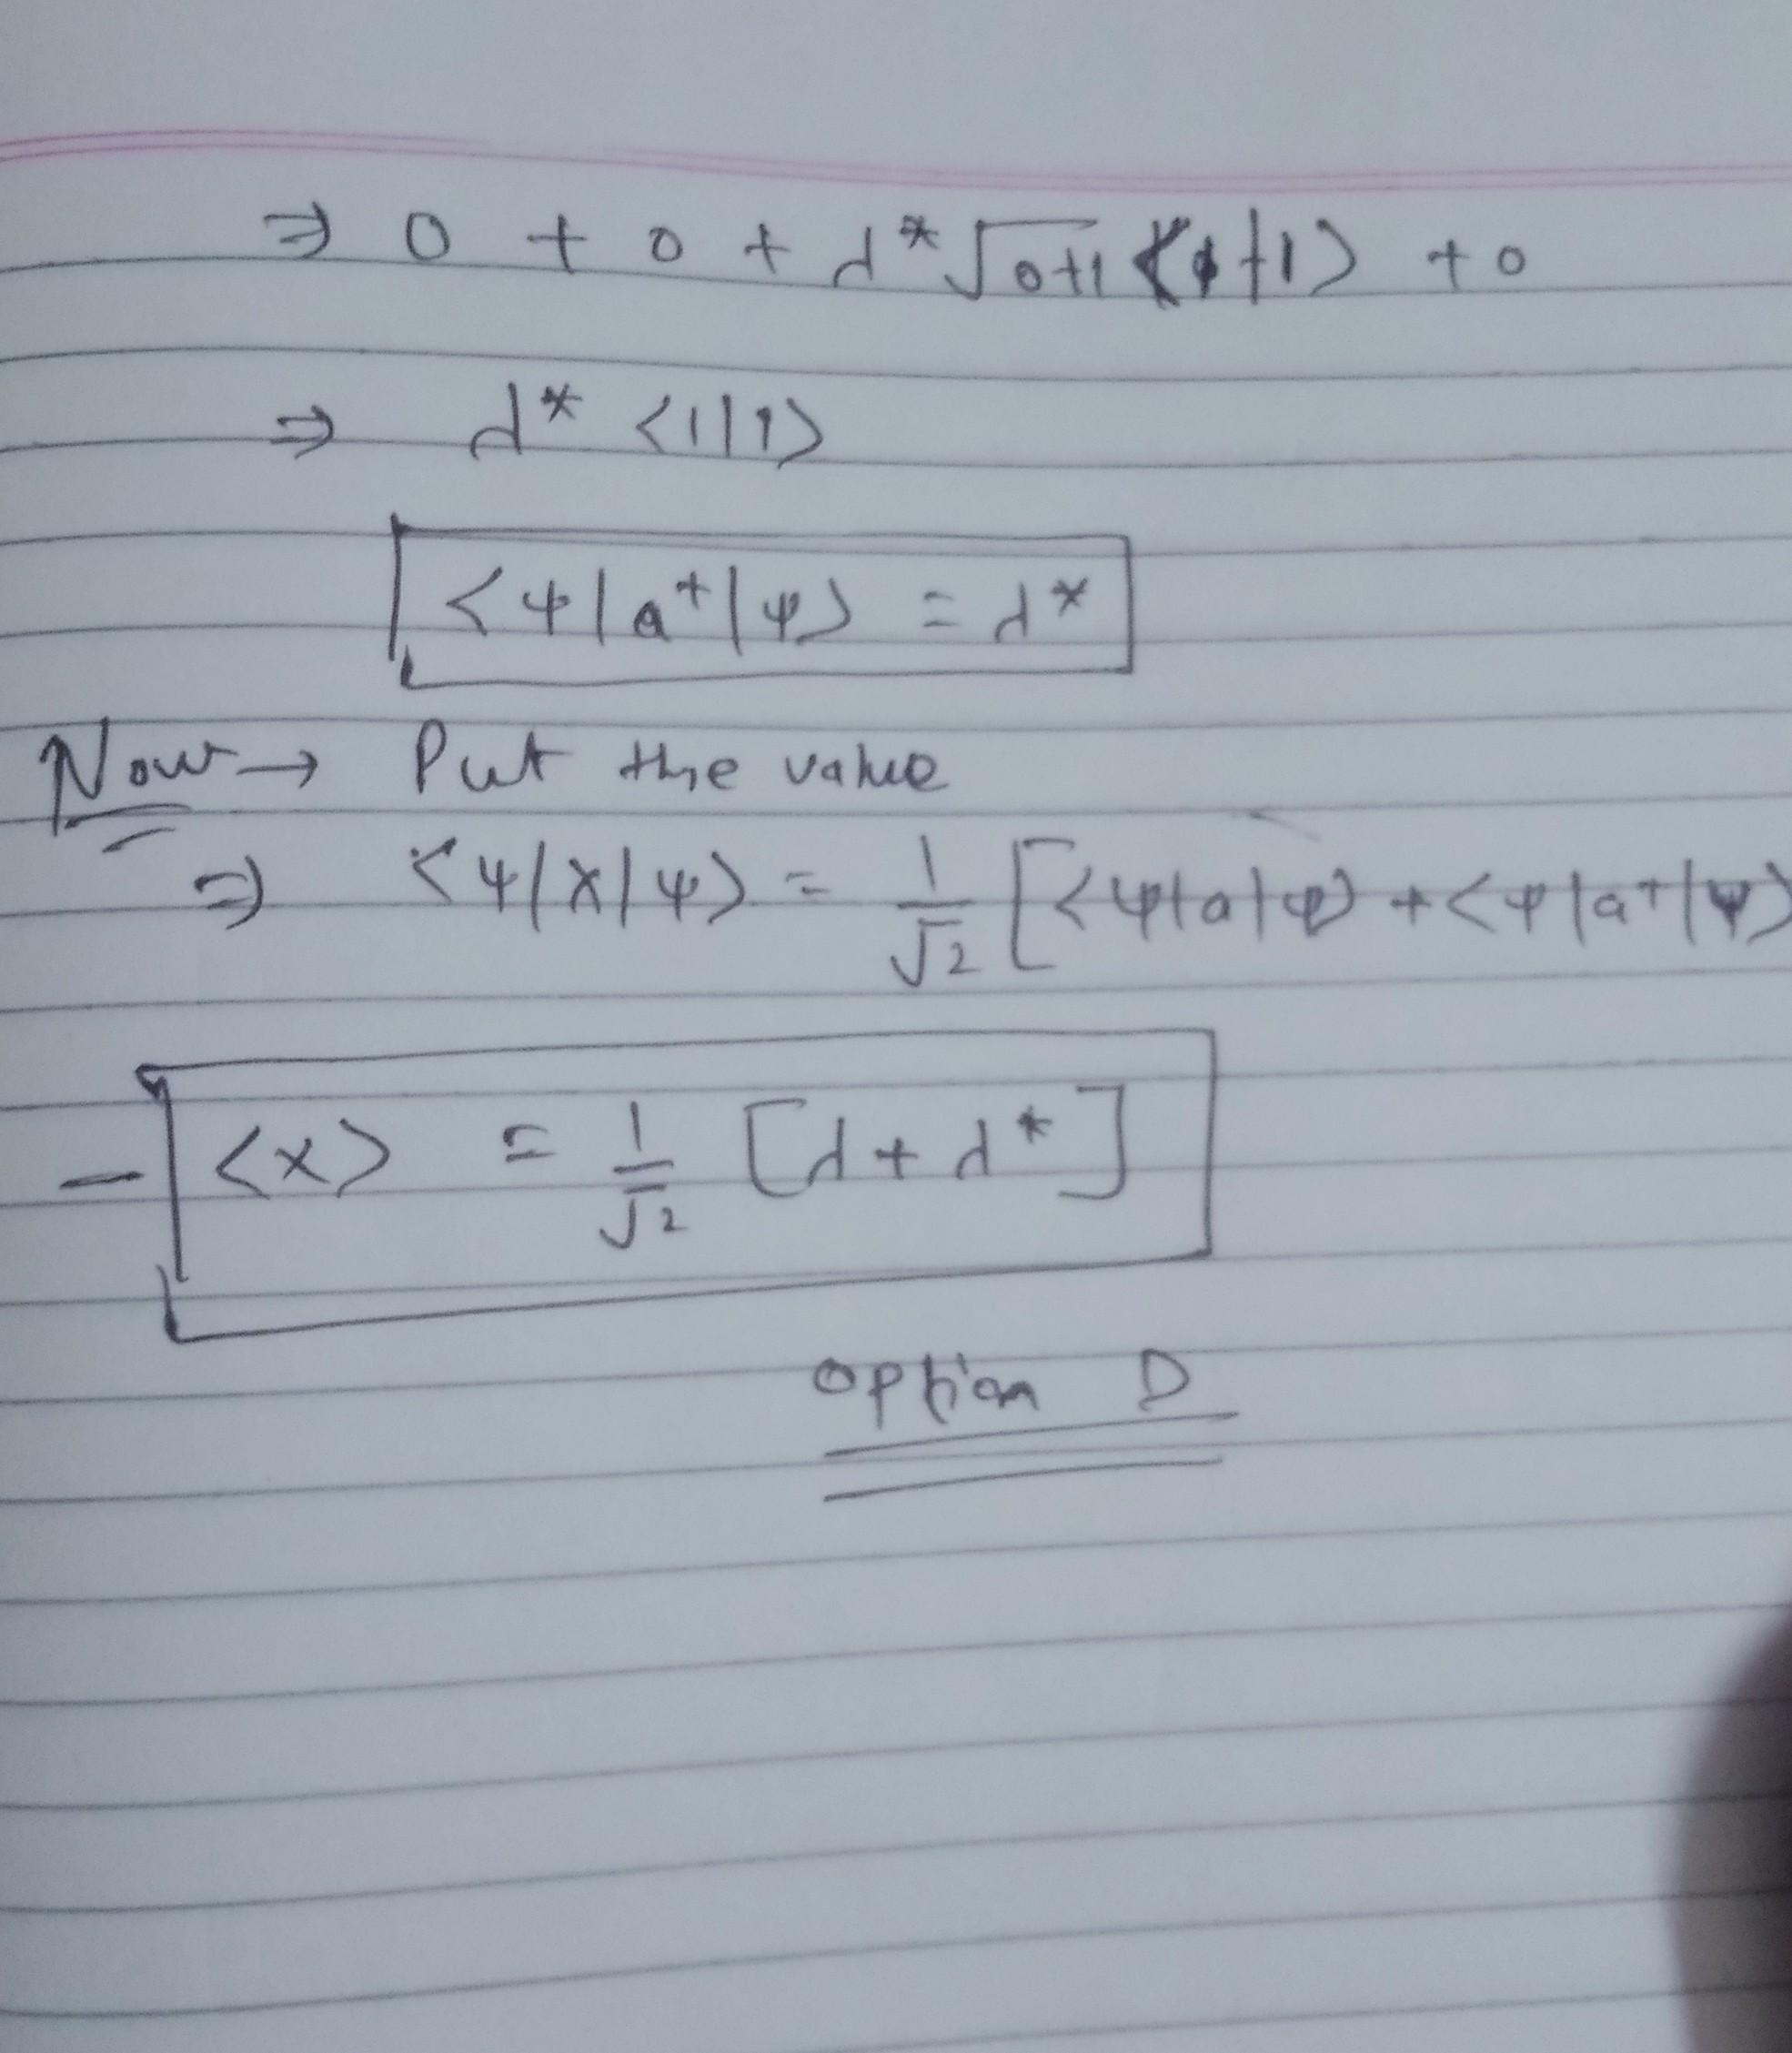 ⇒ 0 + 0 + d*√0+1 <1|1> + 0
⇒ d* <1|1>
<ψ|a+|ψ> = d*
Now → Put the value
⇒ <ψ|x|ψ> = 1/√2 [<ψ|a|ψ> + <ψ|a+|ψ>
- <x> = 1/√2 [d + d*]
option D